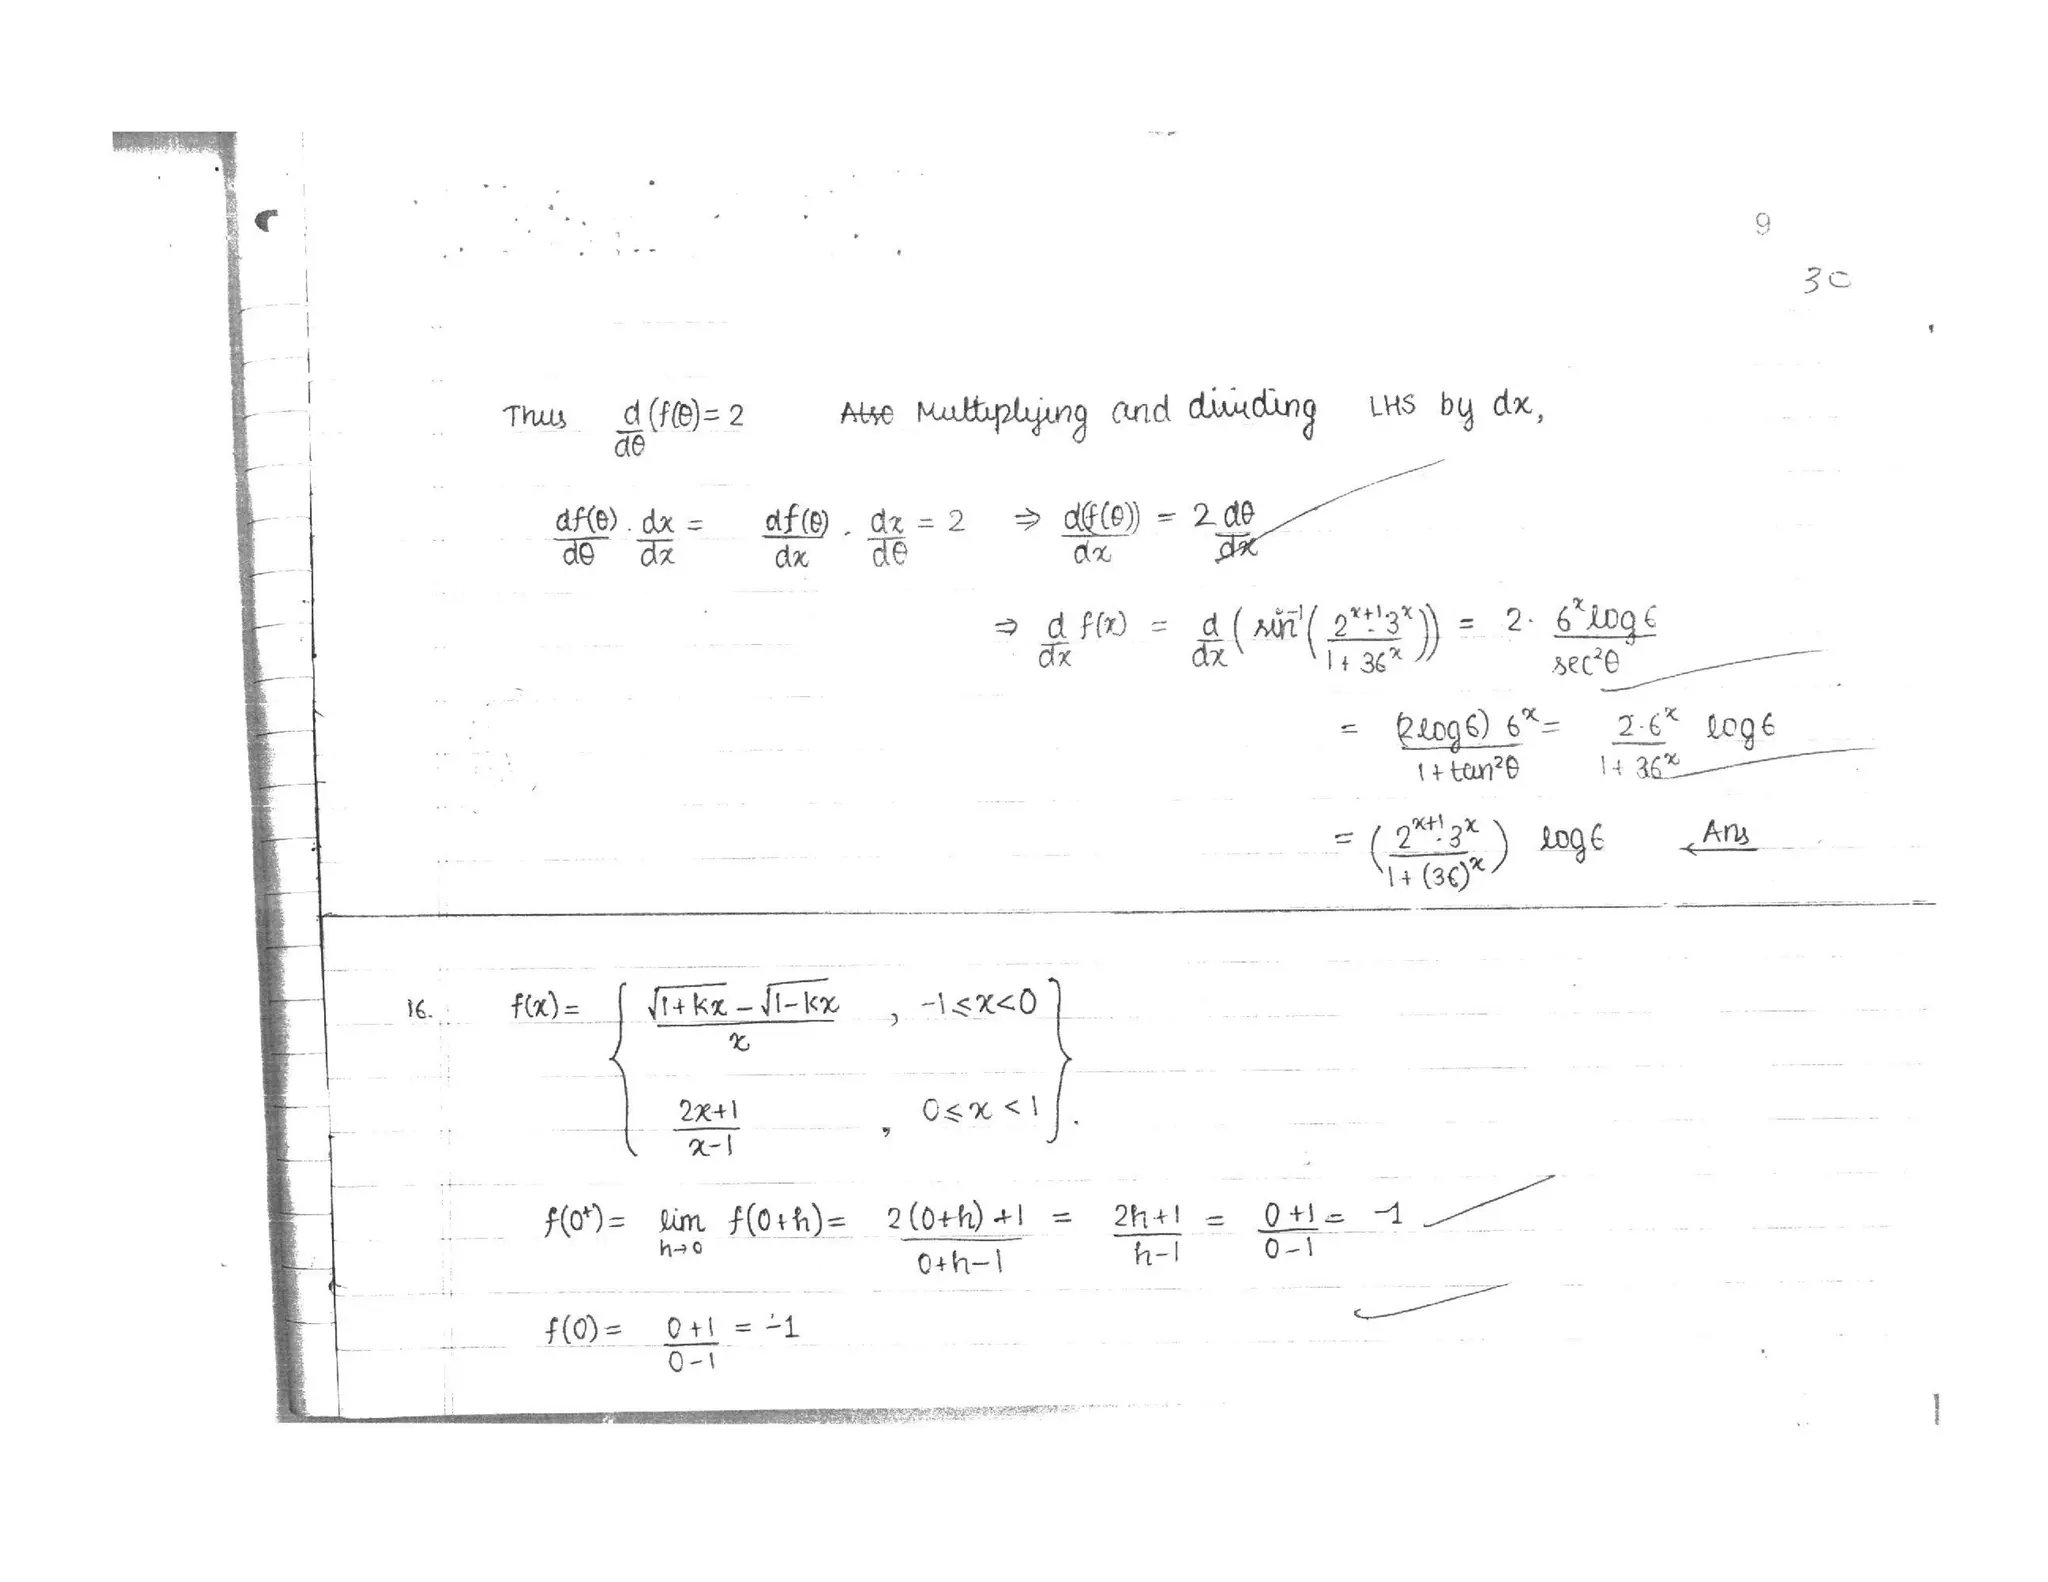 9
30
Thus d/dθ (f(θ)) = 2 Also Multiplying and dividing LHS by dx,
df(θ)/dθ . dx/dx = df(θ)/dx . dx/dθ = 2 ⇒ d(f(θ))/dx = 2 dθ/dx
⇒ d/dx f(x) = d/dx (sin⁻¹(2^(x+1).3^x / 1+36^x)) = 2. 6^x log6 / sec²θ
= (2log6) 6^x / 1+tan²θ = 2.6^x / 1+36^x log6
= (2^(x+1).3^x / 1+(36)^x) log6 Ans
16. f(x) = { √1+kx − √1−kx / x , −1≤x<0
2x+1 / x−1 , 0≤x<1 }.
f(0⁺) = lim h→0 f(0+h) = 2(0+h)+1 / 0+h−1 = 2h+1 / h−1 = 0+1 / 0−1 = −1
f(0) = 0+1 / 0−1 = −1